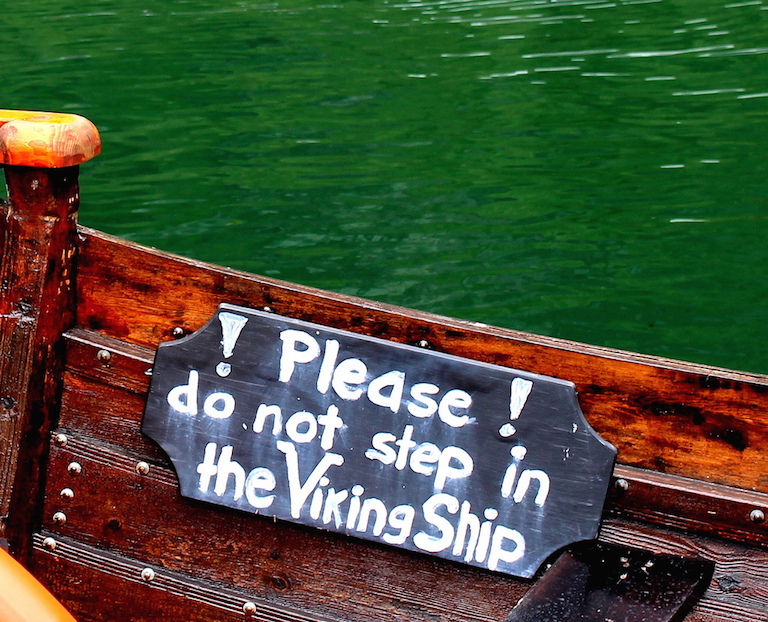 ! Please !
do not step in
the Viking Ship